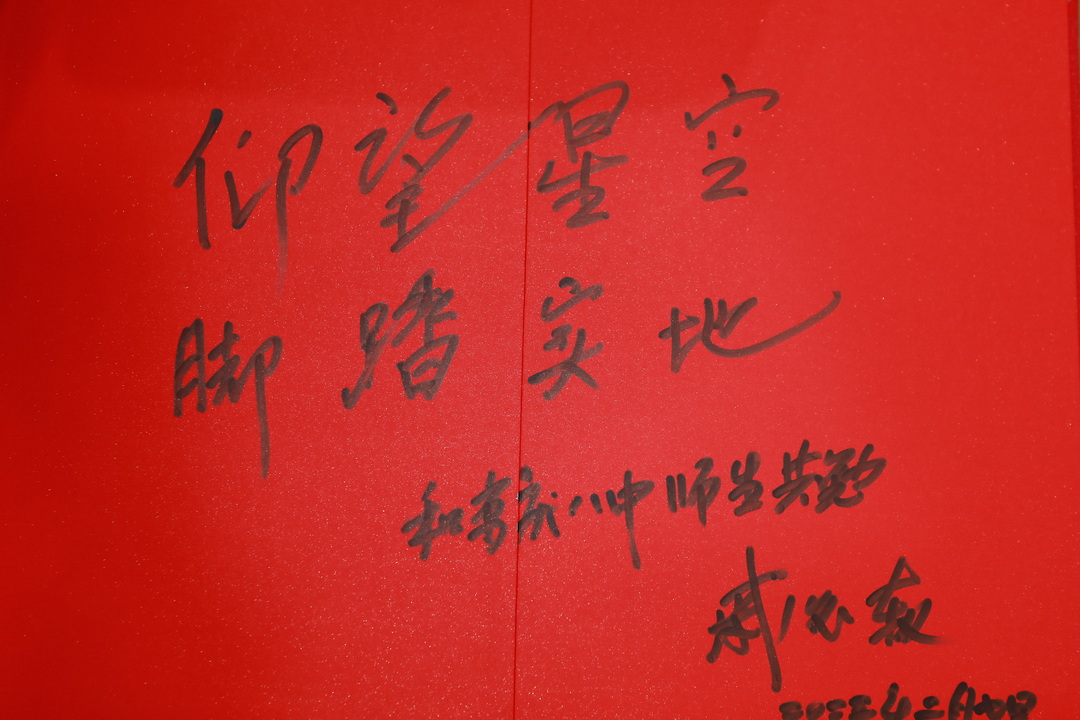 仰望星空
脚踏实地
和京城八中师生共勉
戚发轫